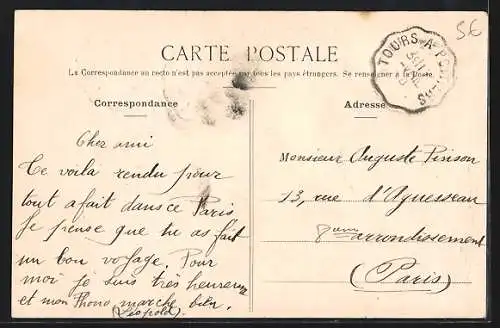 56
CARTE POSTALE
La Correspondance au recto n'est pas acceptée par tous les pays étrangers. Se renseigner à la Poste.
TOURS-A-
Correspondance
Cher ami
Te voila rendu pour
tout a fait dans ce Paris
Je pense que tu as fait
un bon voyage. Pour
moi je suis très heureux
et mon Phono marche bien.
(Léopold).
Adresse
Monsieur Auguste Pinson
13, rue d'Aguesseau
8eme arrondissement
(Paris)